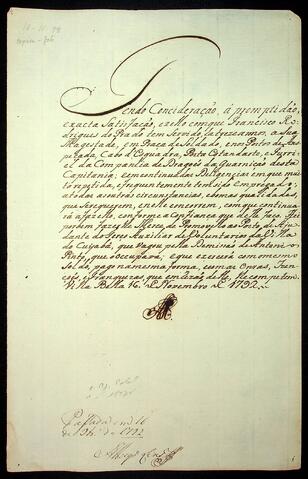 Tendo Concideração, á promptidão,
exacta Satisfação, e zello comque Francisco Ro
drigues do Prado tem Servido catorze annos a Sua
Magestade, em Praça de Soldado, e no Postos de An
speçada, Cabo d'Esquadra, Porta Estandarte, e Furri
el da Companhia de Dragoẽs da Guarniçaõ desta
Capitania; sem continuadas Diligencias em que
muito repetida, e frequentemente tem sido empregado
a todas as outras circunstancias, e boas qualidades
que se requerem, e nelle concorrem, com que continua
rá a fazello, conforme a Confiança que delle faço: Hei
por bem fazer-lhe Merce de Promovello ao Posto de Aju
dante do Terço Auxiliar de Voluntarios da Villa
do Cuyabá, que vagou pela Demissaõ de Antonio
Pinto, que o occupava; e que exercerá com o mesmo
Soldo, pago na mesma forma, e com as Onras, Izen
çoẽs, e Franquezas que em razaõ delle, lhe competem.
Villa Bella 16. de Novembro de 1792.
Passada em 16
de 9br.º de 1792